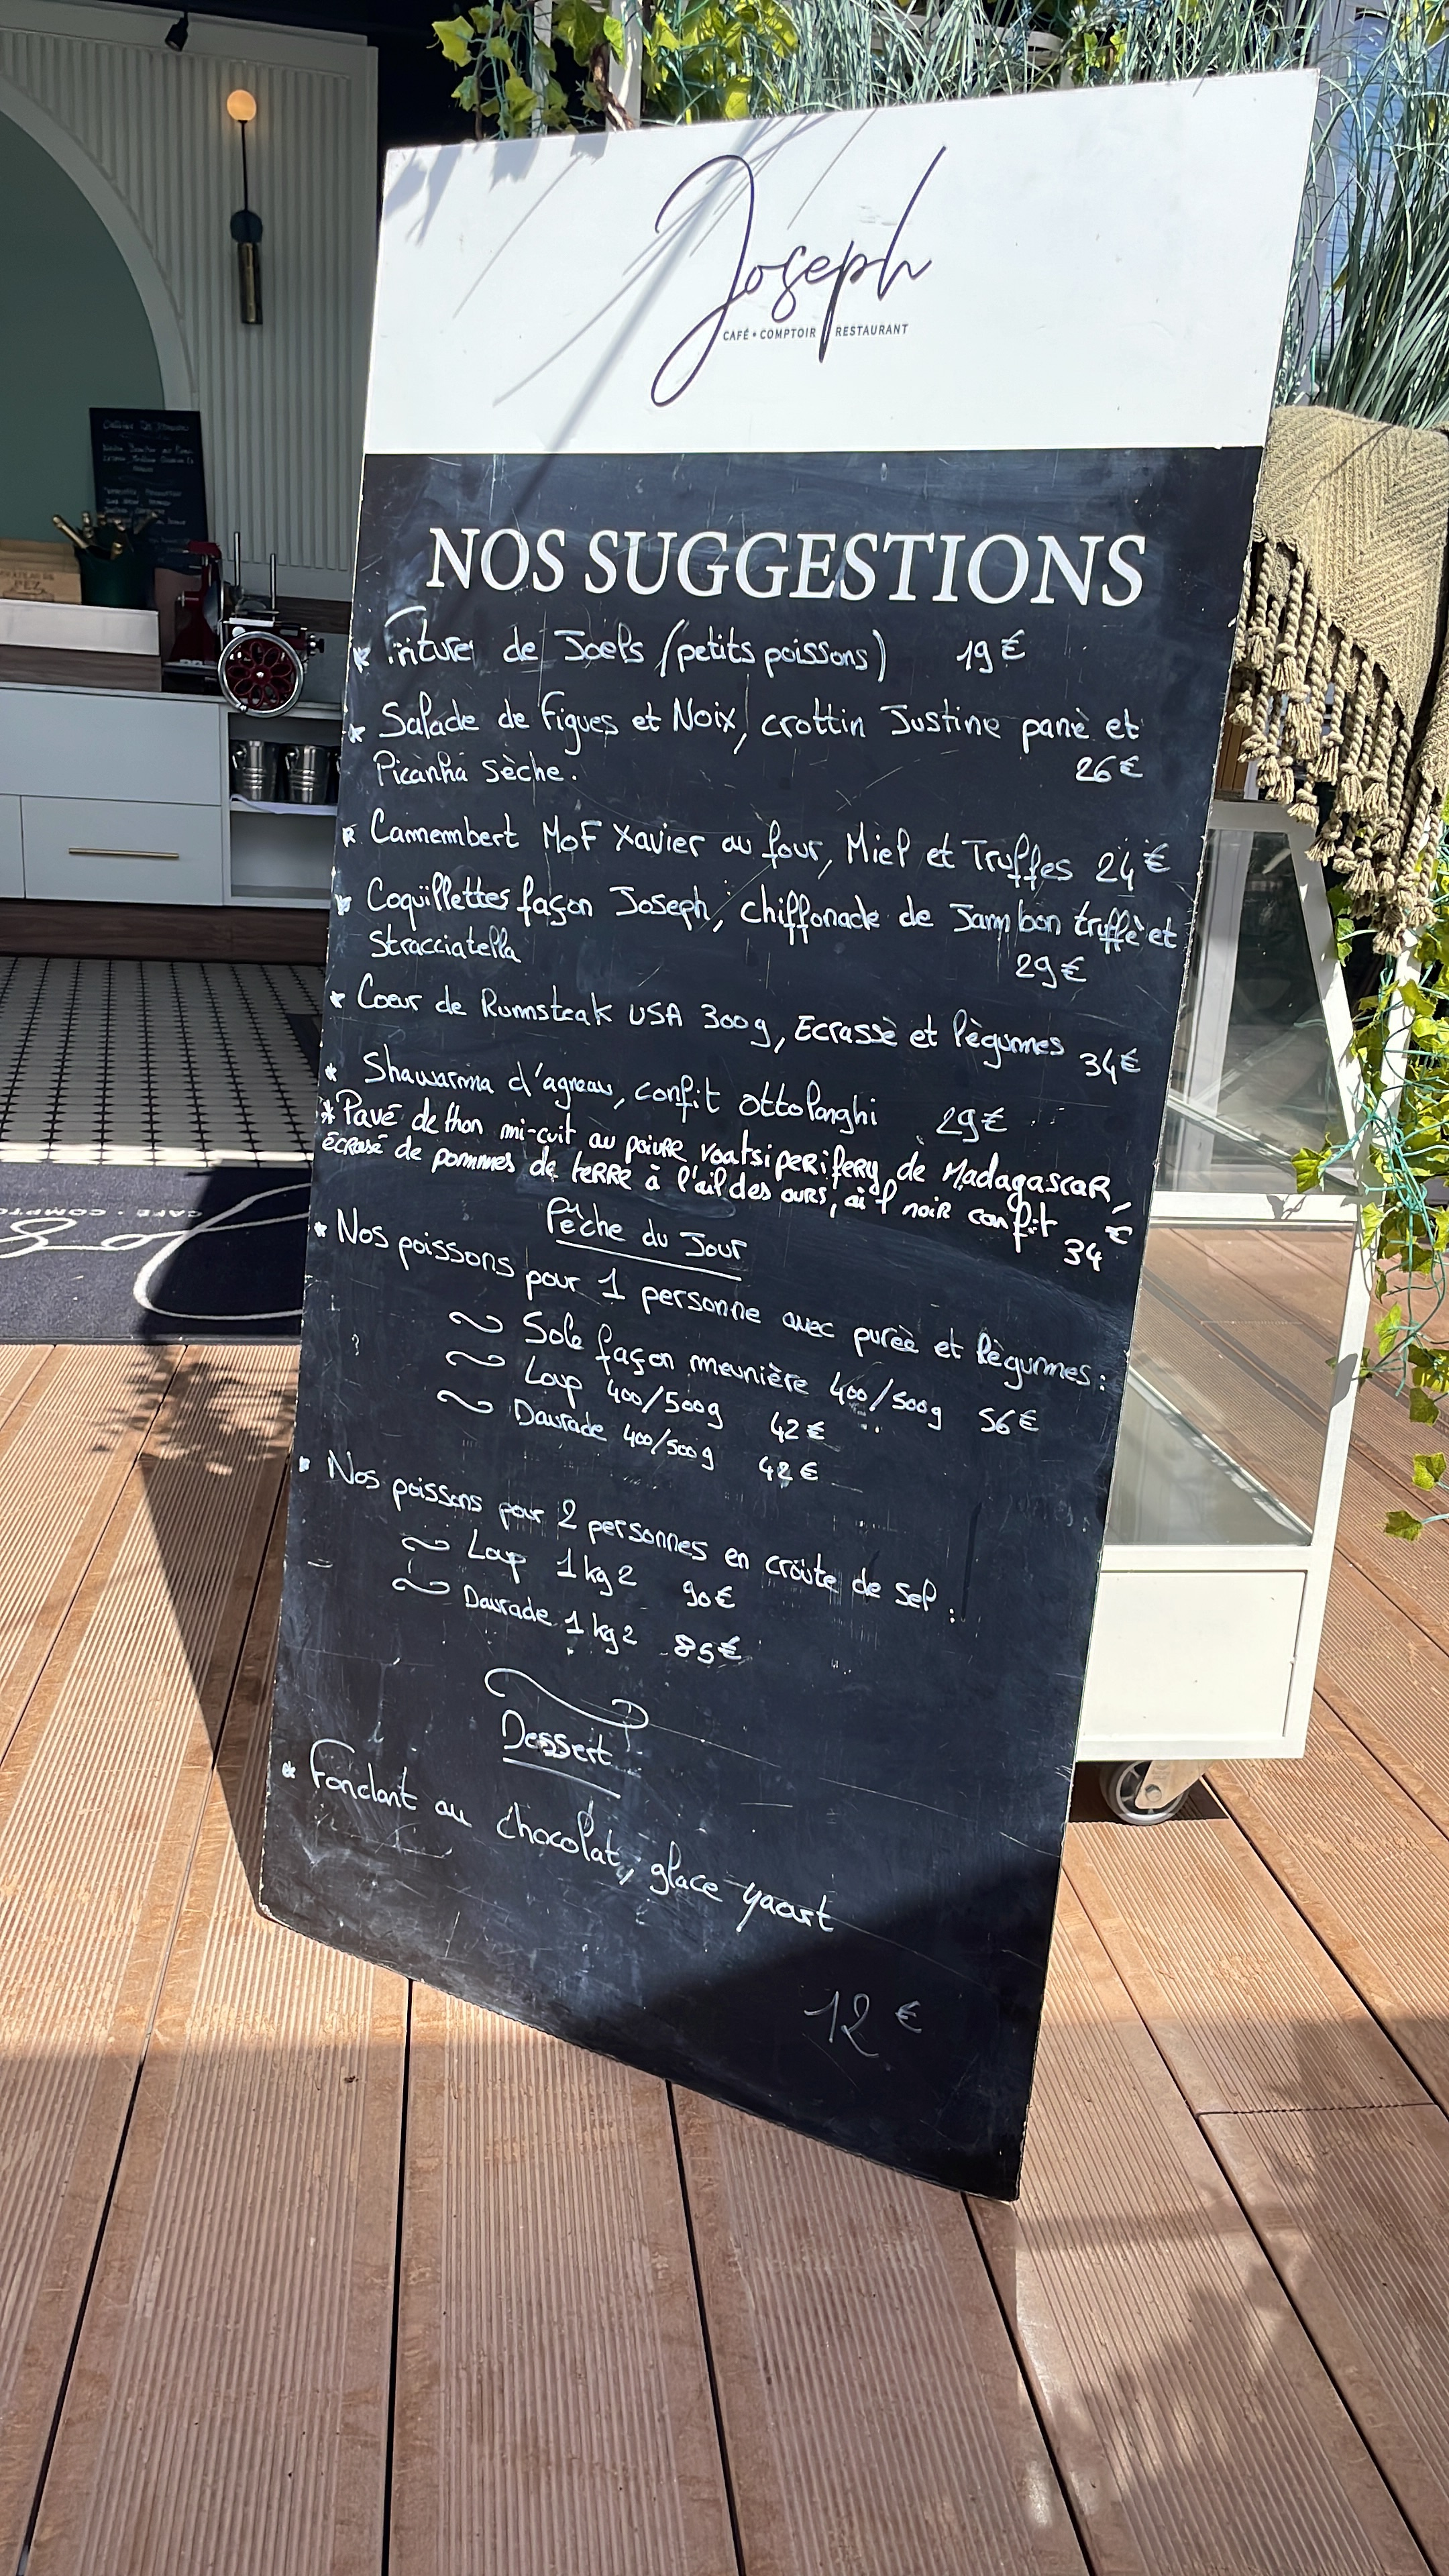 Joseph
CAFÉ • COMPTOIR RESTAURANT
NOS SUGGESTIONS
* Friture de Joels (petits poissons) 19€
* Salade de figues et Noix, crottin Justine panè et
Picanha sèche. 26€
* Camembert MOF Xavier au four, Miel et Truffes 24€
* Coquillettes façon Joseph, chiffonade de Jambon truffè et
Stracciatella 29€
* Coeur de Rumsteak USA 300g, Ecrassè et lègumes 34€
* Shawarma d'agneau, confit Ottolonghi 29€
* Pavé de thon mi-cuit au poivre voatsiperifery de Madagascar,
écrasé de pommes de terre à l'ail des ours, ail noir confit 34€
Pêche du Jour
* Nos poissons pour 1 personne avec purèè et lègumes:
Sole façon meunière 400/500g 56€
Loup 400/500g 42€
Daurade 400/500g 42€
* Nos poissons pour 2 personnes en croûte de sel:
Loup 1kg2 90€
Daurade 1kg2 85€
Dessert
* Fondant au chocolat, glace yaourt
12€
CAFÉ • COMPTO